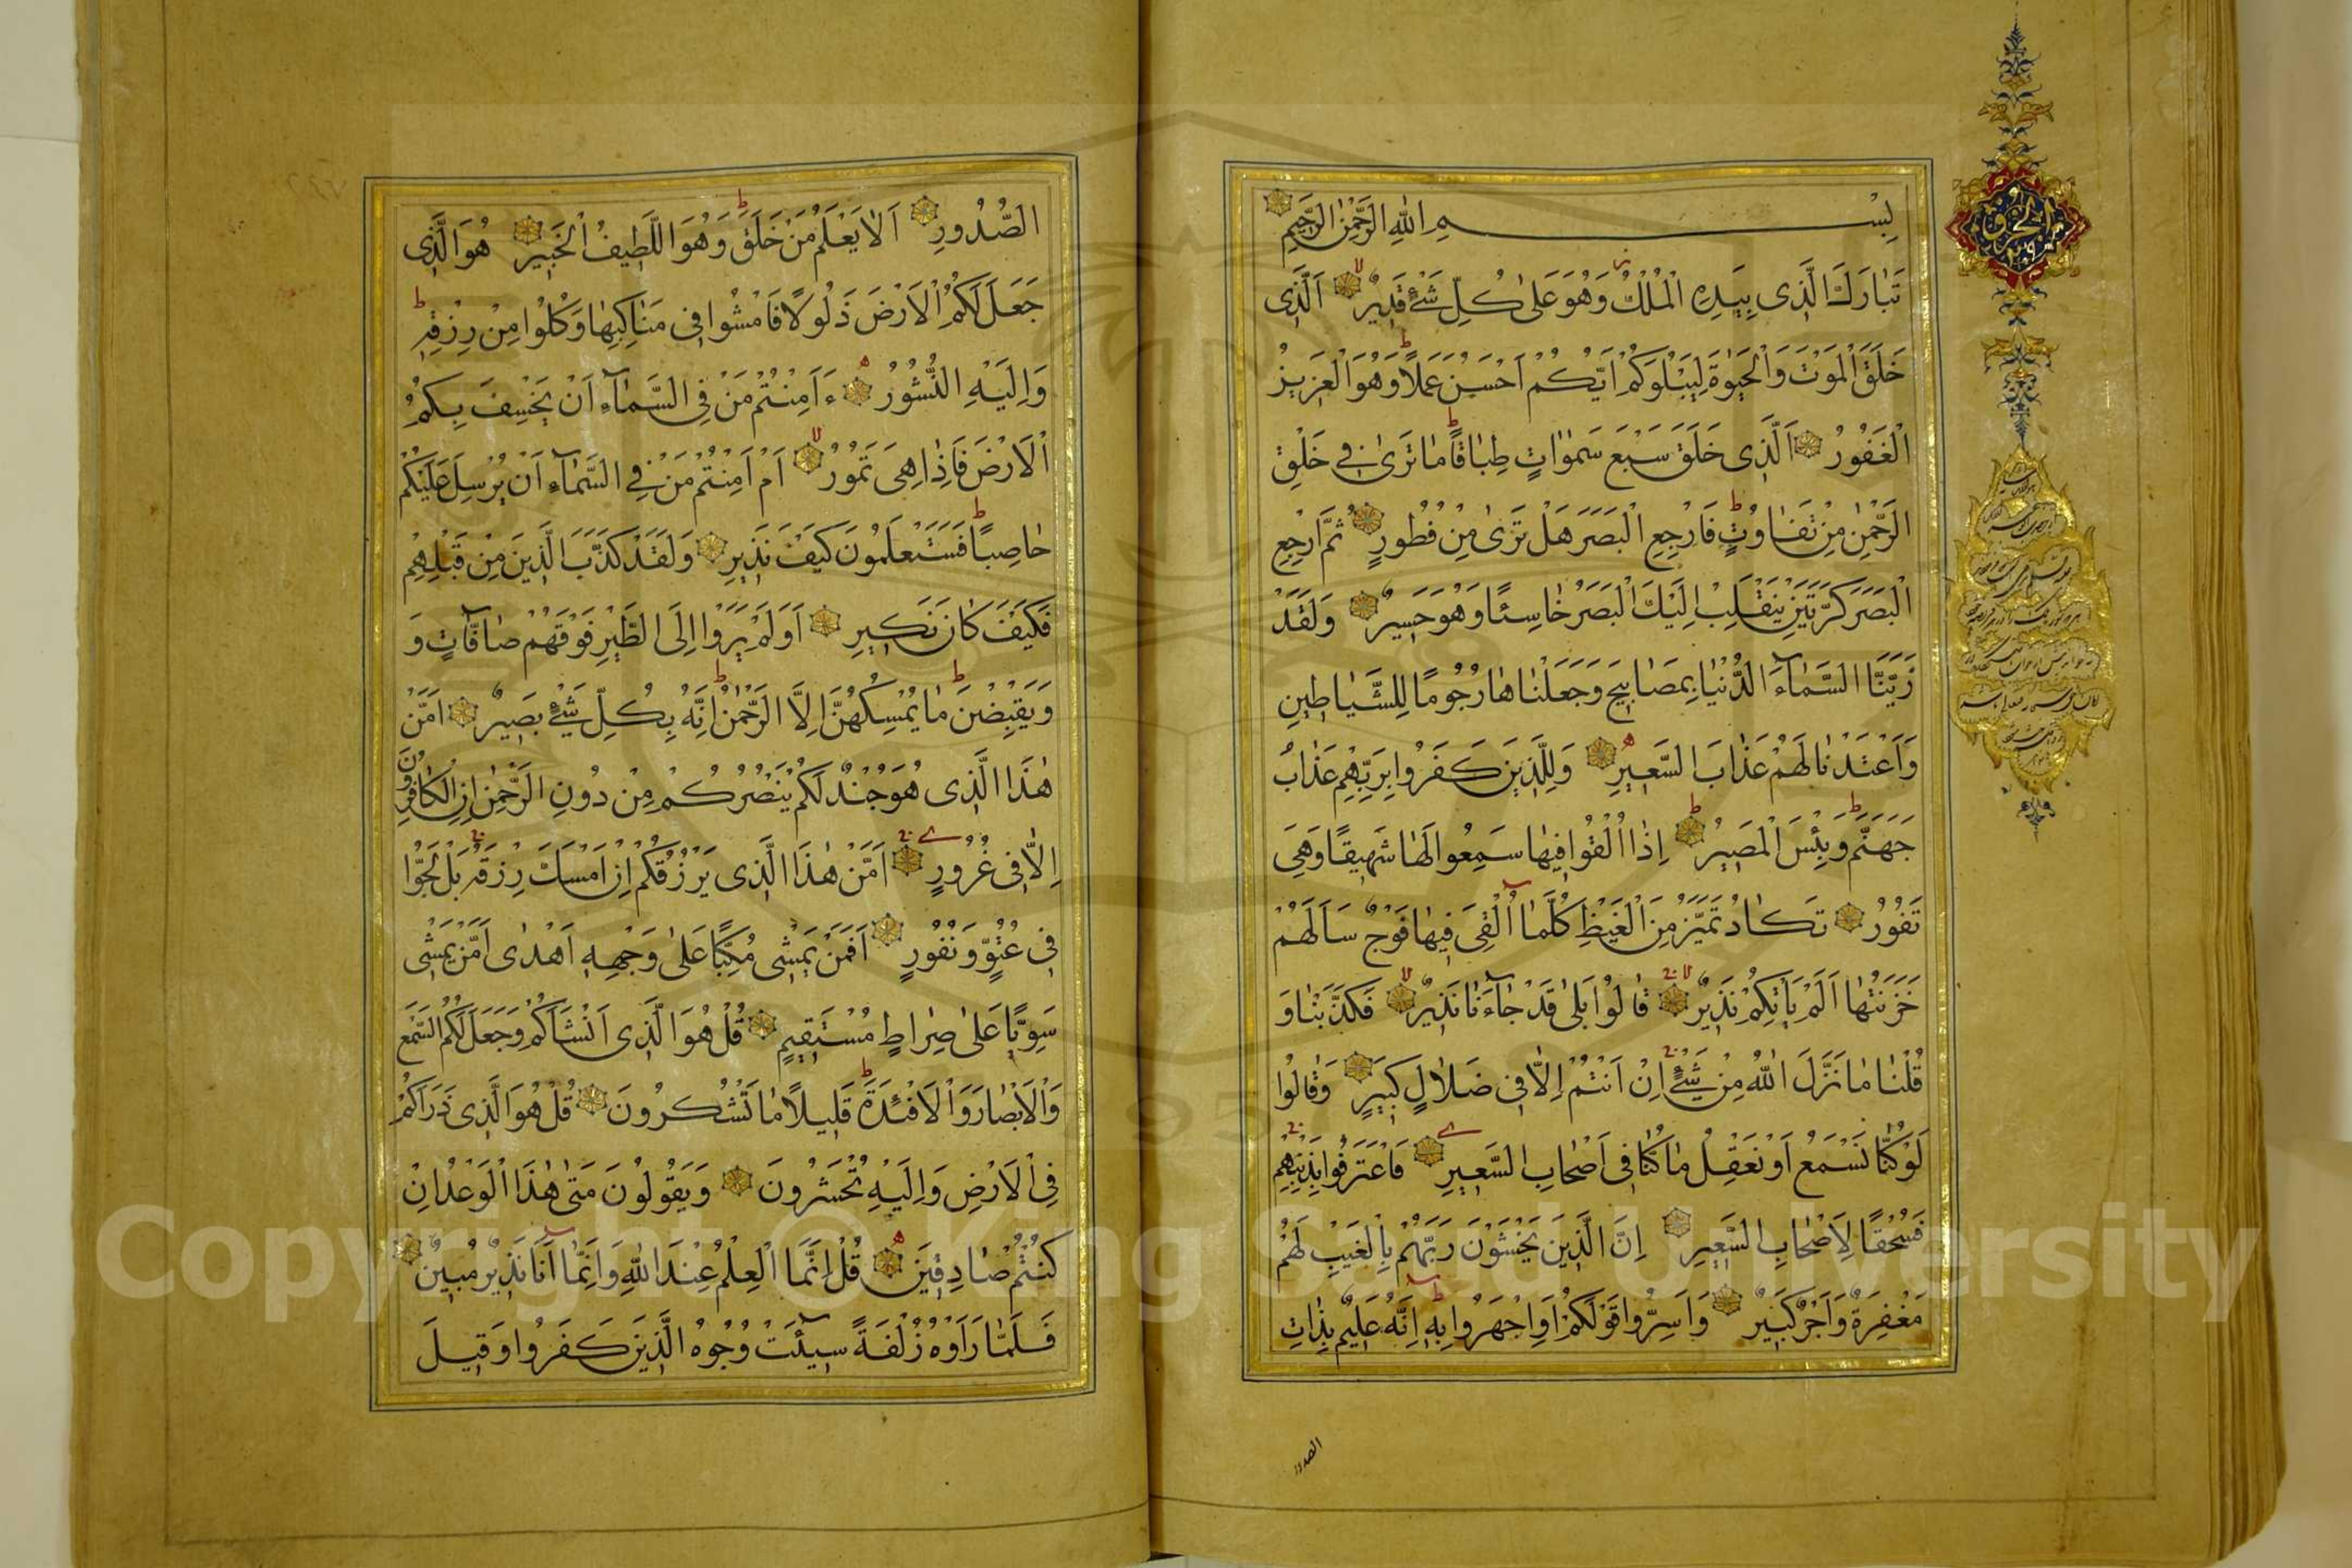 بِسْمِ اللهِ الرَّحْمٰنِ الرَّحِيمِ
تَبَارَكَ الَّذِى بِيَدِهِ الْمُلْكُ وَهُوَ عَلٰى كُلِّ شَىْءٍ قَدِيرٌ اَلَّذِى
خَلَقَ الْمَوْتَ وَالْحَيٰوةَ لِيَبْلُوَكُمْ اَيُّكُمْ اَحْسَنُ عَمَلًا وَهُوَ الْعَزِيزُ
الْغَفُورُ اَلَّذِى خَلَقَ سَبْعَ سَمٰوَاتٍ طِبَاقًا مَا تَرٰى فِى خَلْقِ
الرَّحْمٰنِ مِنْ تَفَاوُتٍ فَارْجِعِ الْبَصَرَ هَلْ تَرٰى مِنْ فُطُورٍ ثُمَّ ارْجِعِ
الْبَصَرَ كَرَّتَيْنِ يَنْقَلِبْ اِلَيْكَ الْبَصَرُ خَاسِئًا وَهُوَ حَسِيرٌ وَلَقَدْ
زَيَّنَّا السَّمَآءَ الدُّنْيَا بِمَصَابِيحَ وَجَعَلْنَاهَا رُجُومًا لِلشَّيَاطِينِ
وَاَعْتَدْنَا لَهُمْ عَذَابَ السَّعِيرِ وَلِلَّذِينَ كَفَرُوا بِرَبِّهِمْ عَذَابُ
جَهَنَّمَ وَبِئْسَ الْمَصِيرُ اِذَا اُلْقُوا فِيهَا سَمِعُوا لَهَا شَهِيقًا وَهِىَ
تَفُورُ تَكَادُ تَمَيَّزُ مِنَ الْغَيْظِ كُلَّمَا اُلْقِىَ فِيهَا فَوْجٌ سَاَلَهُمْ
خَزَنَتُهَا اَلَمْ يَاْتِكُمْ نَذِيرٌ قَالُوا بَلٰى قَدْ جَآءَنَا نَذِيرٌ فَكَذَّبْنَا وَ
قُلْنَا مَا نَزَّلَ اللهُ مِنْ شَىْءٍ اِنْ اَنْتُمْ اِلَّا فِى ضَلَالٍ كَبِيرٍ وَقَالُوا
لَوْ كُنَّا نَسْمَعُ اَوْ نَعْقِلُ مَا كُنَّا فِى اَصْحَابِ السَّعِيرِ فَاعْتَرَفُوا بِذَنْبِهِمْ
فَسُحْقًا لِاَصْحَابِ السَّعِيرِ اِنَّ الَّذِينَ يَخْشَوْنَ رَبَّهُمْ بِالْغَيْبِ لَهُمْ
مَغْفِرَةٌ وَاَجْرٌ كَبِيرٌ وَاَسِرُّوا قَوْلَكُمْ اَوِ اجْهَرُوا بِهِ اِنَّهُ عَلِيمٌ بِذَاتِ
الصدور
الصُّدُورِ اَلَا يَعْلَمُ مَنْ خَلَقَ وَهُوَ اللَّطِيفُ الْخَبِيرُ هُوَ الَّذِى
جَعَلَ لَكُمُ الْاَرْضَ ذَلُولًا فَامْشُوا فِى مَنَاكِبِهَا وَكُلُوا مِنْ رِزْقِهِ
وَاِلَيْهِ النُّشُورُ ءَاَمِنْتُمْ مَنْ فِى السَّمَآءِ اَنْ يَخْسِفَ بِكُمُ
الْاَرْضَ فَاِذَا هِىَ تَمُورُ اَمْ اَمِنْتُمْ مَنْ فِى السَّمَآءِ اَنْ يُرْسِلَ عَلَيْكُمْ
حَاصِبًا فَسَتَعْلَمُونَ كَيْفَ نَذِيرِ وَلَقَدْ كَذَّبَ الَّذِينَ مِنْ قَبْلِهِمْ
فَكَيْفَ كَانَ نَكِيرِ اَوَلَمْ يَرَوْا اِلَى الطَّيْرِ فَوْقَهُمْ صَآفَّاتٍ وَ
وَيَقْبِضْنَ مَا يُمْسِكُهُنَّ اِلَّا الرَّحْمٰنُ اِنَّهُ بِكُلِّ شَىْءٍ بَصِيرٌ اَمَّنْ
هٰذَا الَّذِى هُوَ جُنْدٌ لَكُمْ يَنْصُرُكُمْ مِنْ دُونِ الرَّحْمٰنِ اِنِ الْكَافِرُونَ
اِلَّا فِى غُرُورٍ اَمَّنْ هٰذَا الَّذِى يَرْزُقُكُمْ اِنْ اَمْسَكَ رِزْقَهُ بَلْ لَجُّوا
فِى عُتُوٍّ وَنُفُورٍ اَفَمَنْ يَمْشِى مُكِبًّا عَلٰى وَجْهِهِ اَهْدٰى اَمَّنْ يَمْشِى
سَوِيًّا عَلٰى صِرَاطٍ مُسْتَقِيمٍ قُلْ هُوَ الَّذِى اَنْشَاَكُمْ وَجَعَلَ لَكُمُ السَّمْعَ
وَالْاَبْصَارَ وَالْاَفْئِدَةَ قَلِيلًا مَا تَشْكُرُونَ قُلْ هُوَ الَّذِى ذَرَاَكُمْ
فِى الْاَرْضِ وَاِلَيْهِ تُحْشَرُونَ وَيَقُولُونَ مَتٰى هٰذَا الْوَعْدُ اِنْ
كُنْتُمْ صَادِقِينَ قُلْ اِنَّمَا الْعِلْمُ عِنْدَ اللهِ وَاِنَّمَا اَنَا نَذِيرٌ مُبِينٌ
فَلَمَّا رَاَوْهُ زُلْفَةً سِيئَتْ وُجُوهُ الَّذِينَ كَفَرُوا وَقِيلَ
Copyright © King Saud University